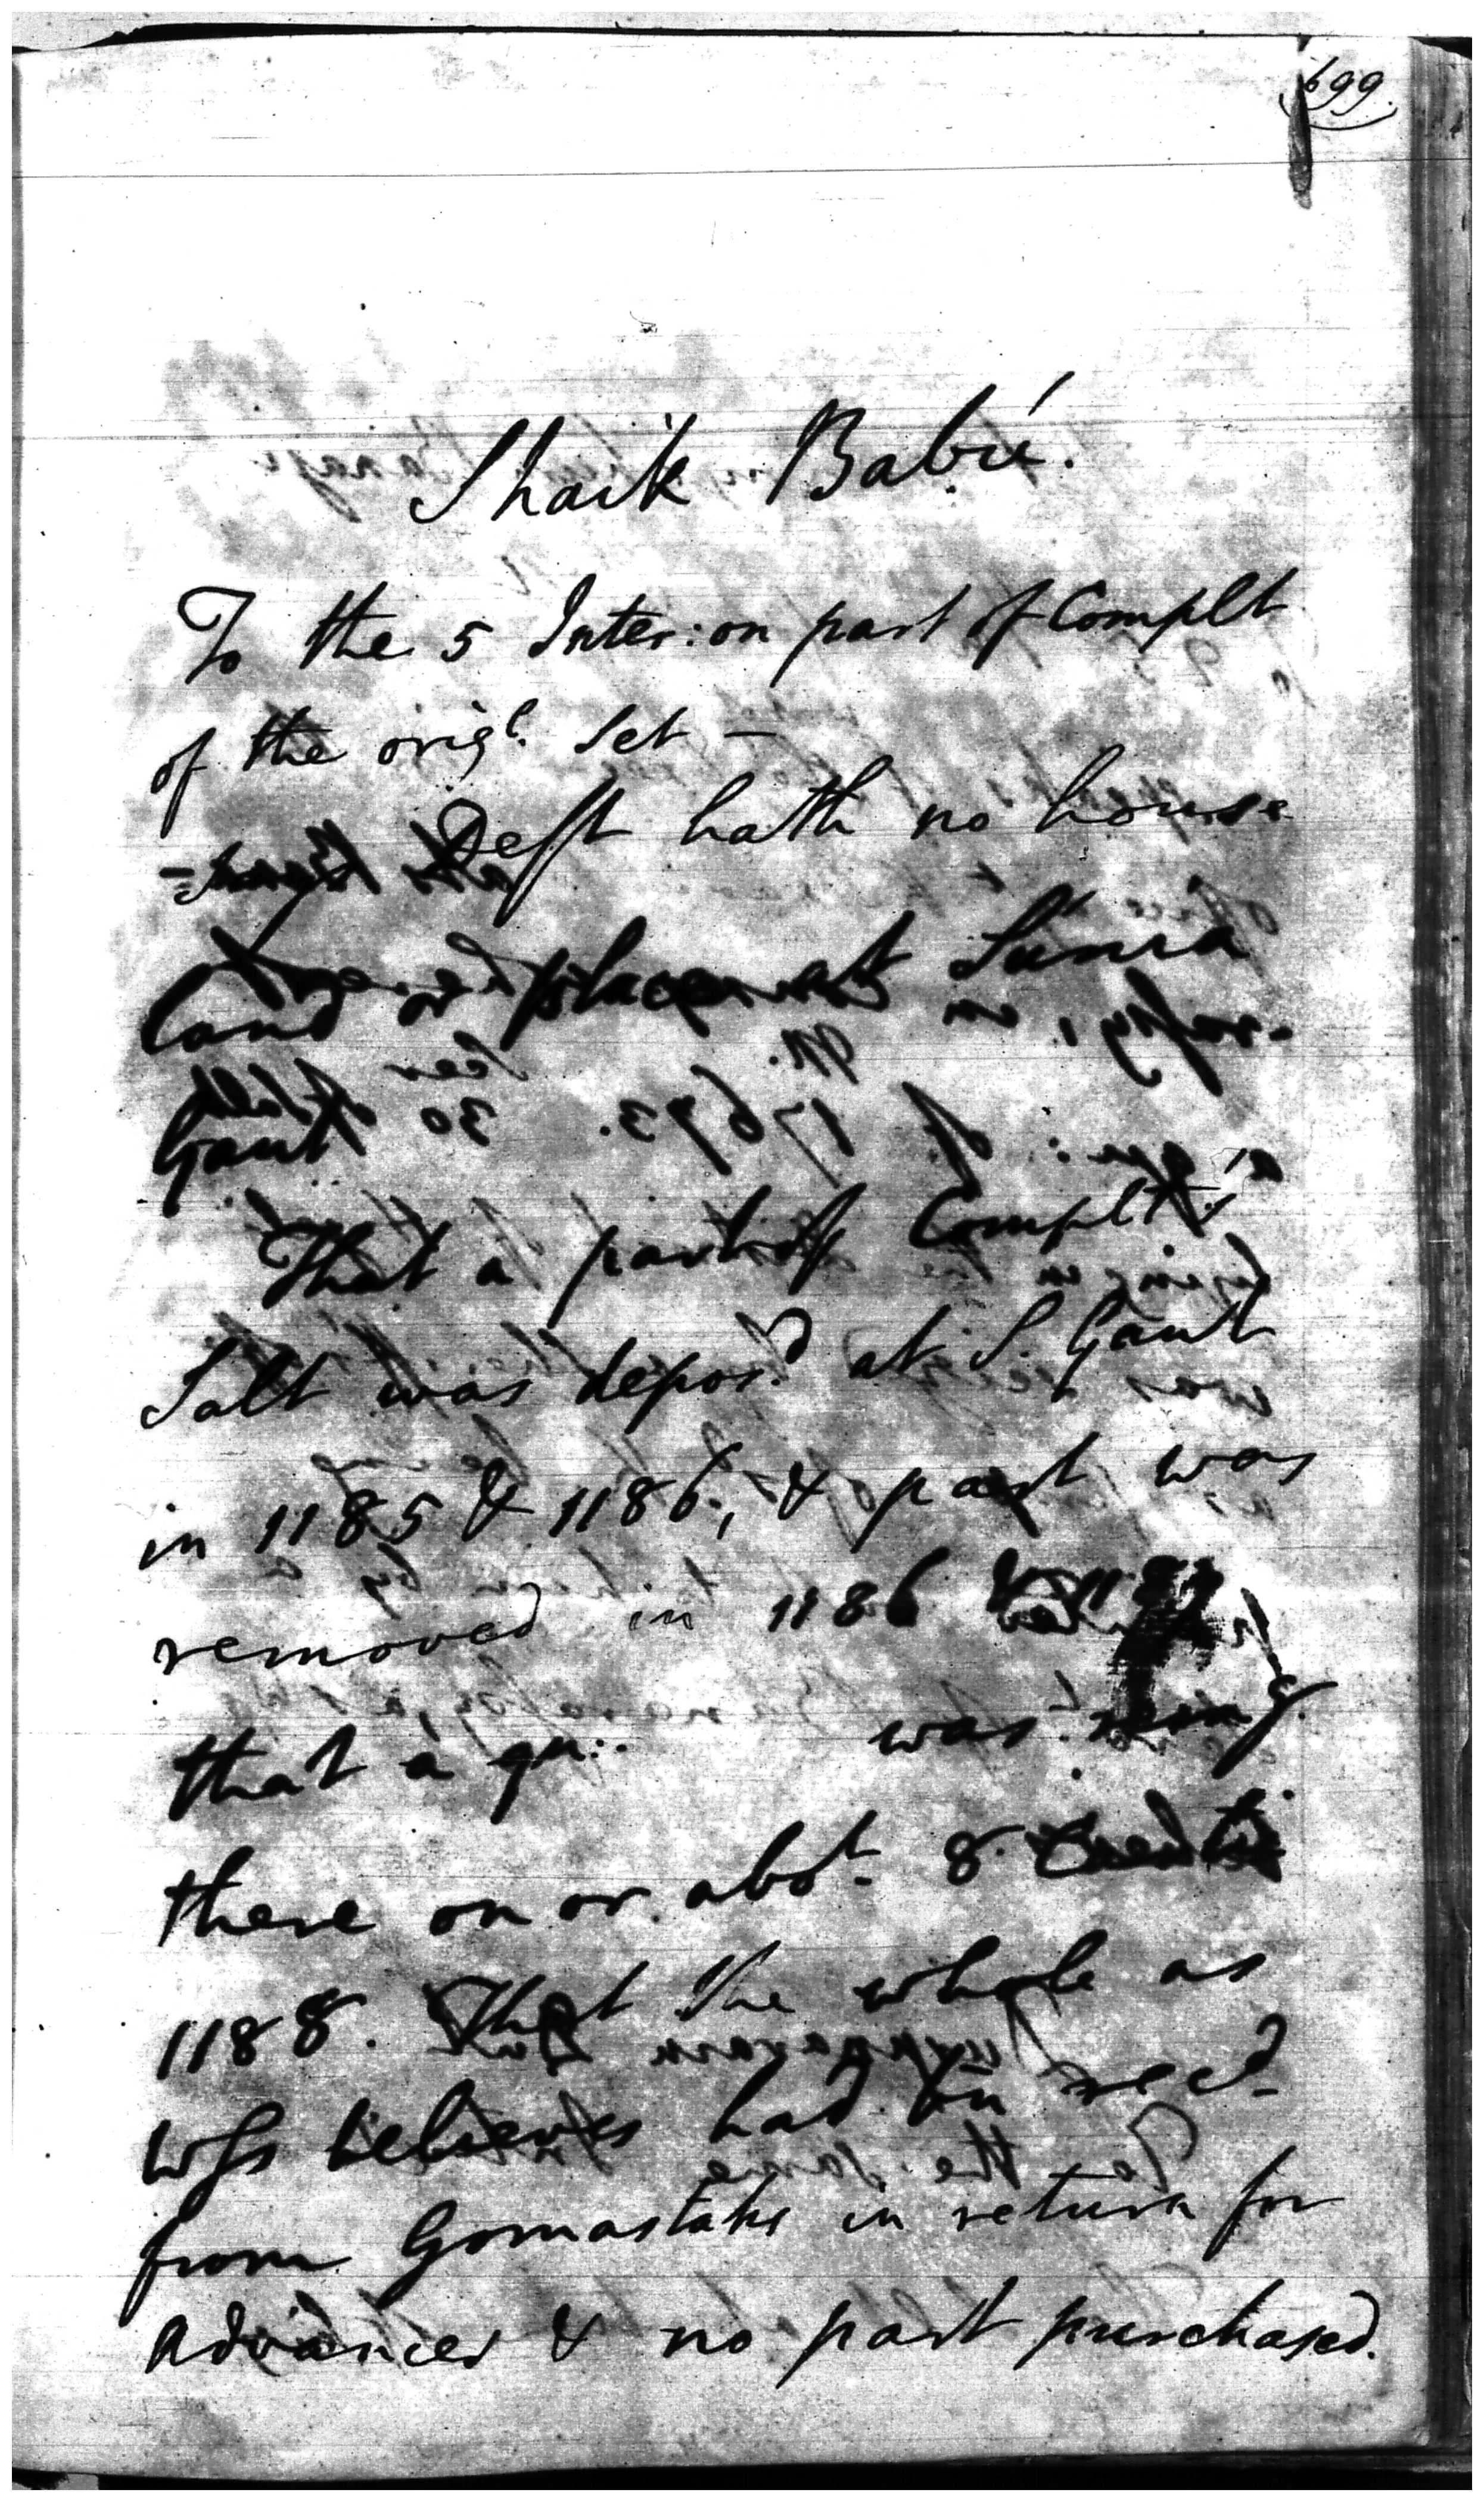 699
Shaik Babú.
To the 5 Inter: on part of Complt
of the origl. Set —
Deft hath no house
land or place at
Gaut
That a part of Complt's
Salt was deposd at S. Gaut
in 1185 & 1186, & part was
removed in 1186 & 1187
that a qu: was remg.
there on or abot. 8
1188. That the whole as
Wss believes had bn recd
from Gomastahs in return for
advances & no part purchased.